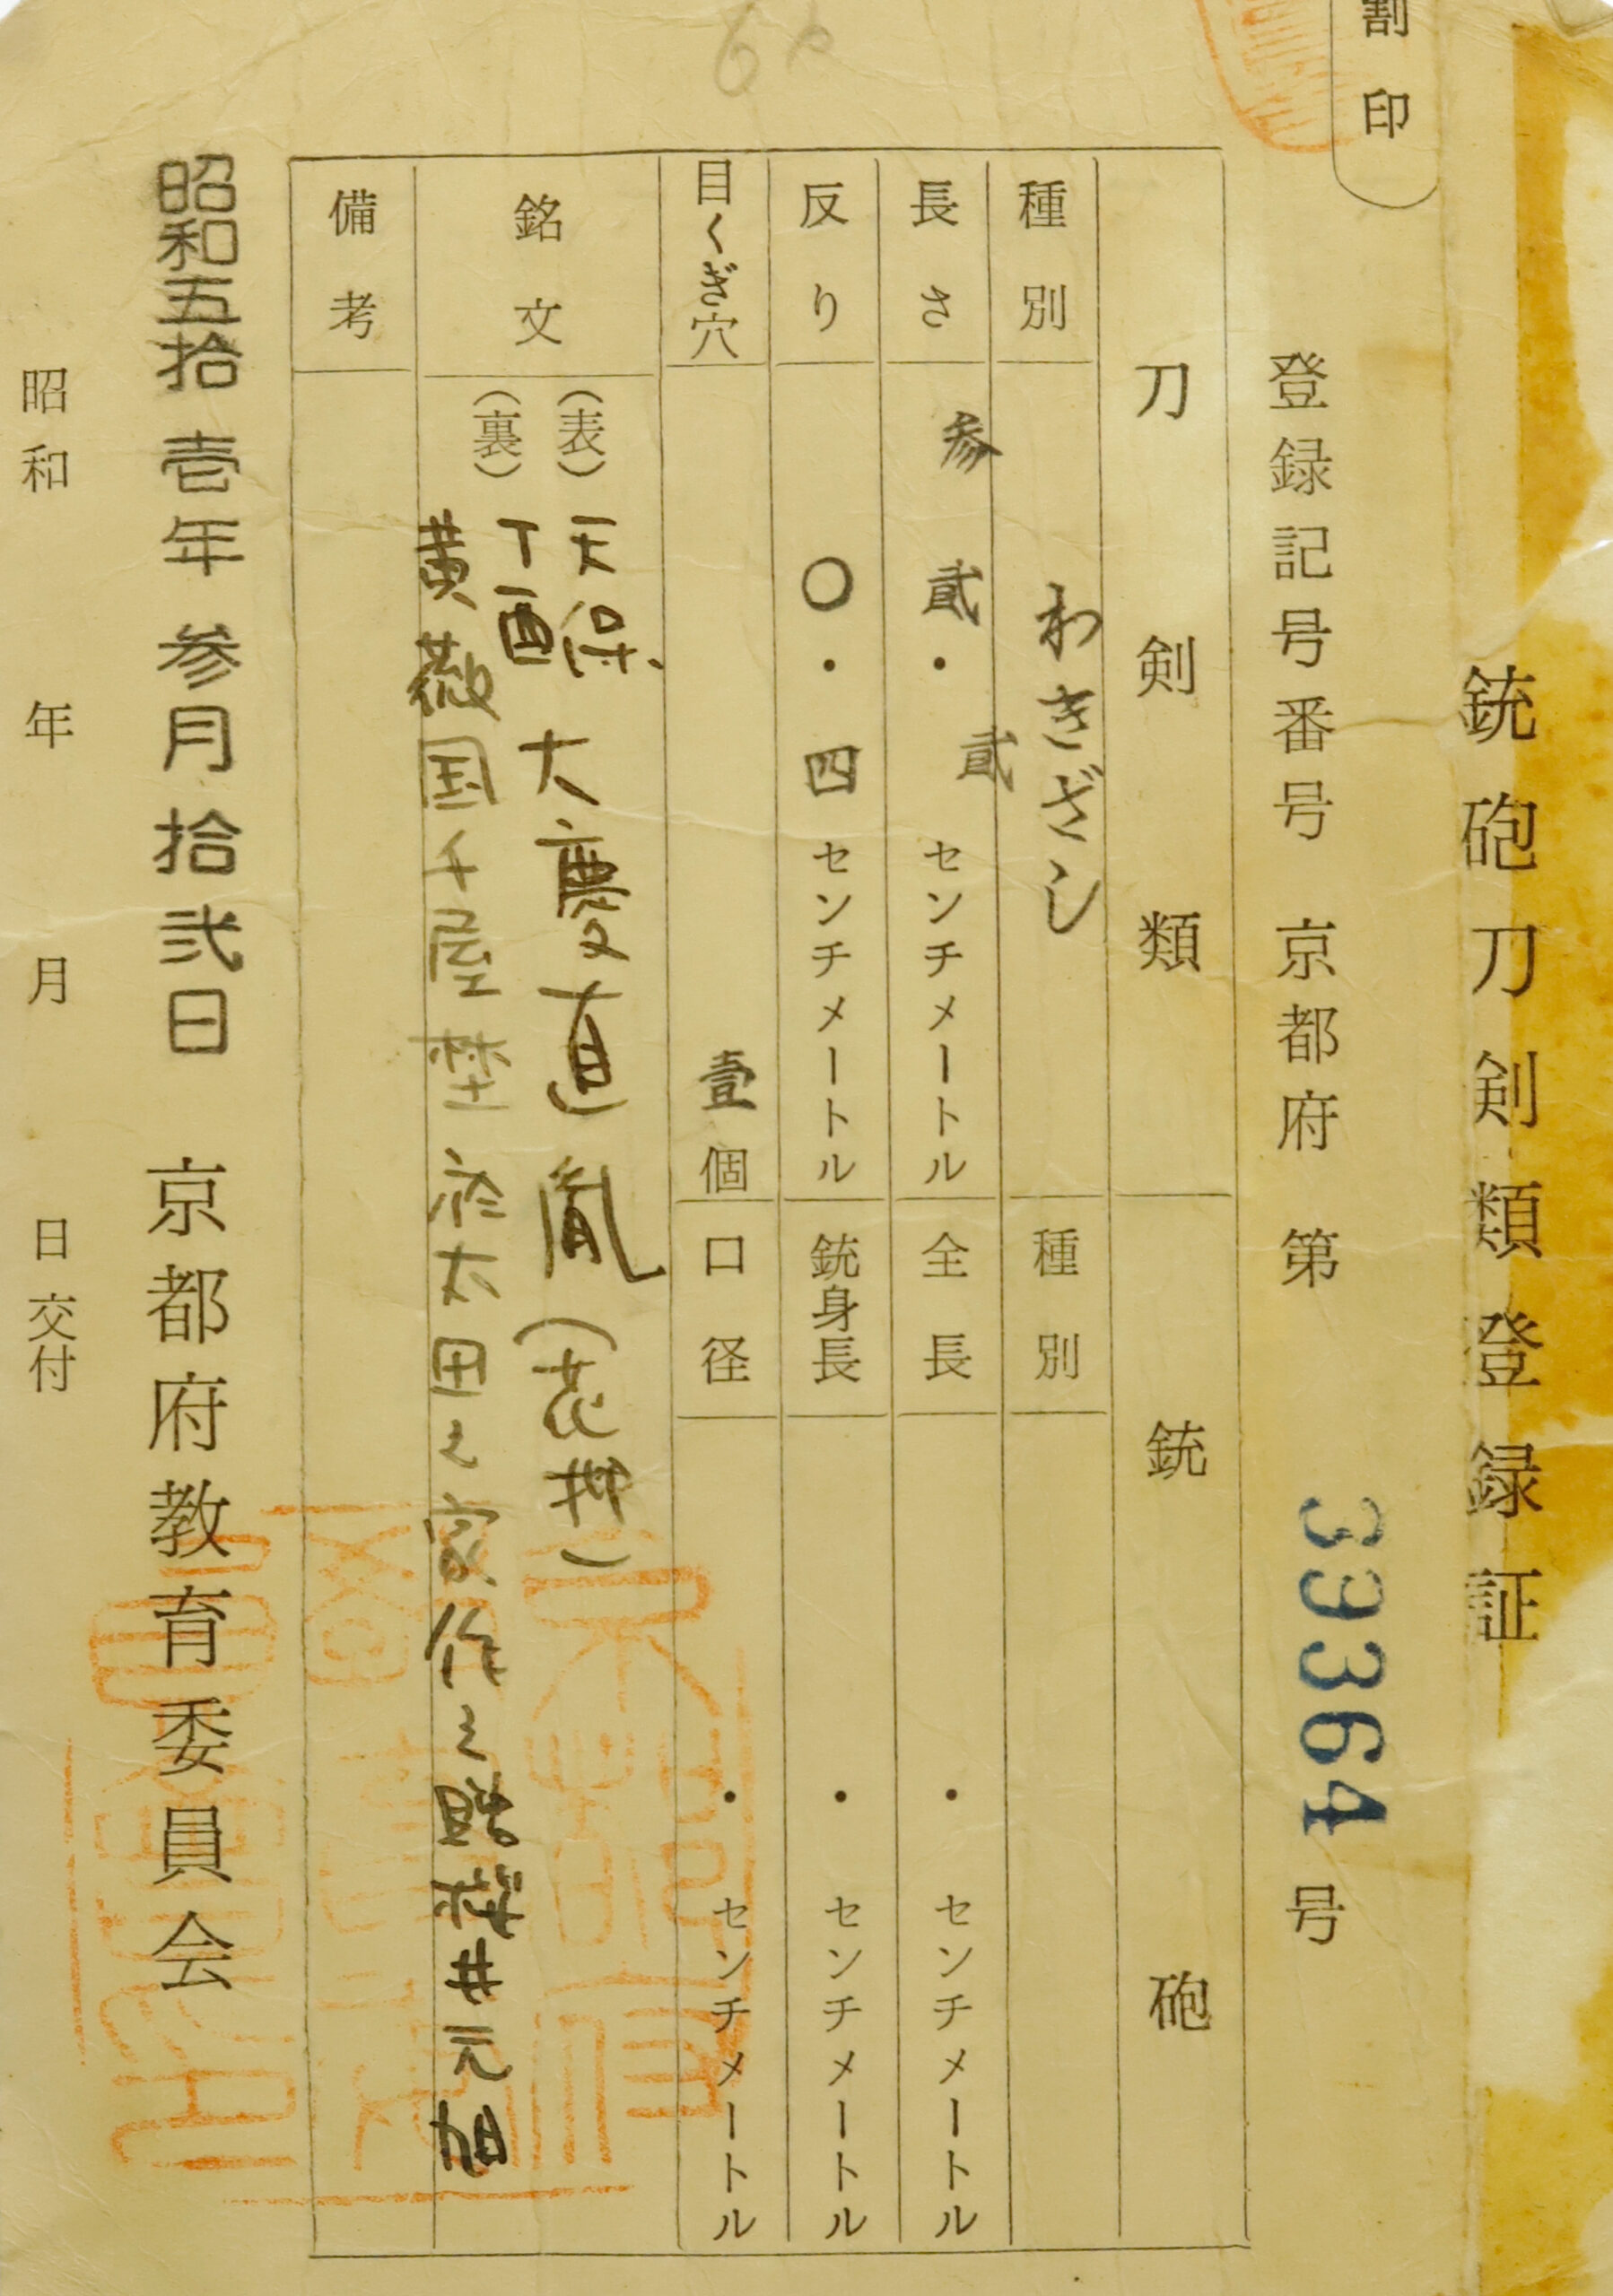 割印
銃砲刀剣類登録証
登録記号番号 京都府 第 39364 号
刀剣類 銃砲
種別 わきざし 種別
長さ 参貳.貳センチメートル 全長 . センチメートル
反り 〇.四センチメートル 銃身長 . センチメートル
目くぎ穴 壹個 口径 . センチメートル
銘文
(表) 天保丁酉 大慶直胤(花押)
(裏) 黄薇国千屋埜 於太田之家作之贈桜井元
備考
昭和五拾壱年参月拾弐日 京都府教育委員会
昭和 年 月 日交付